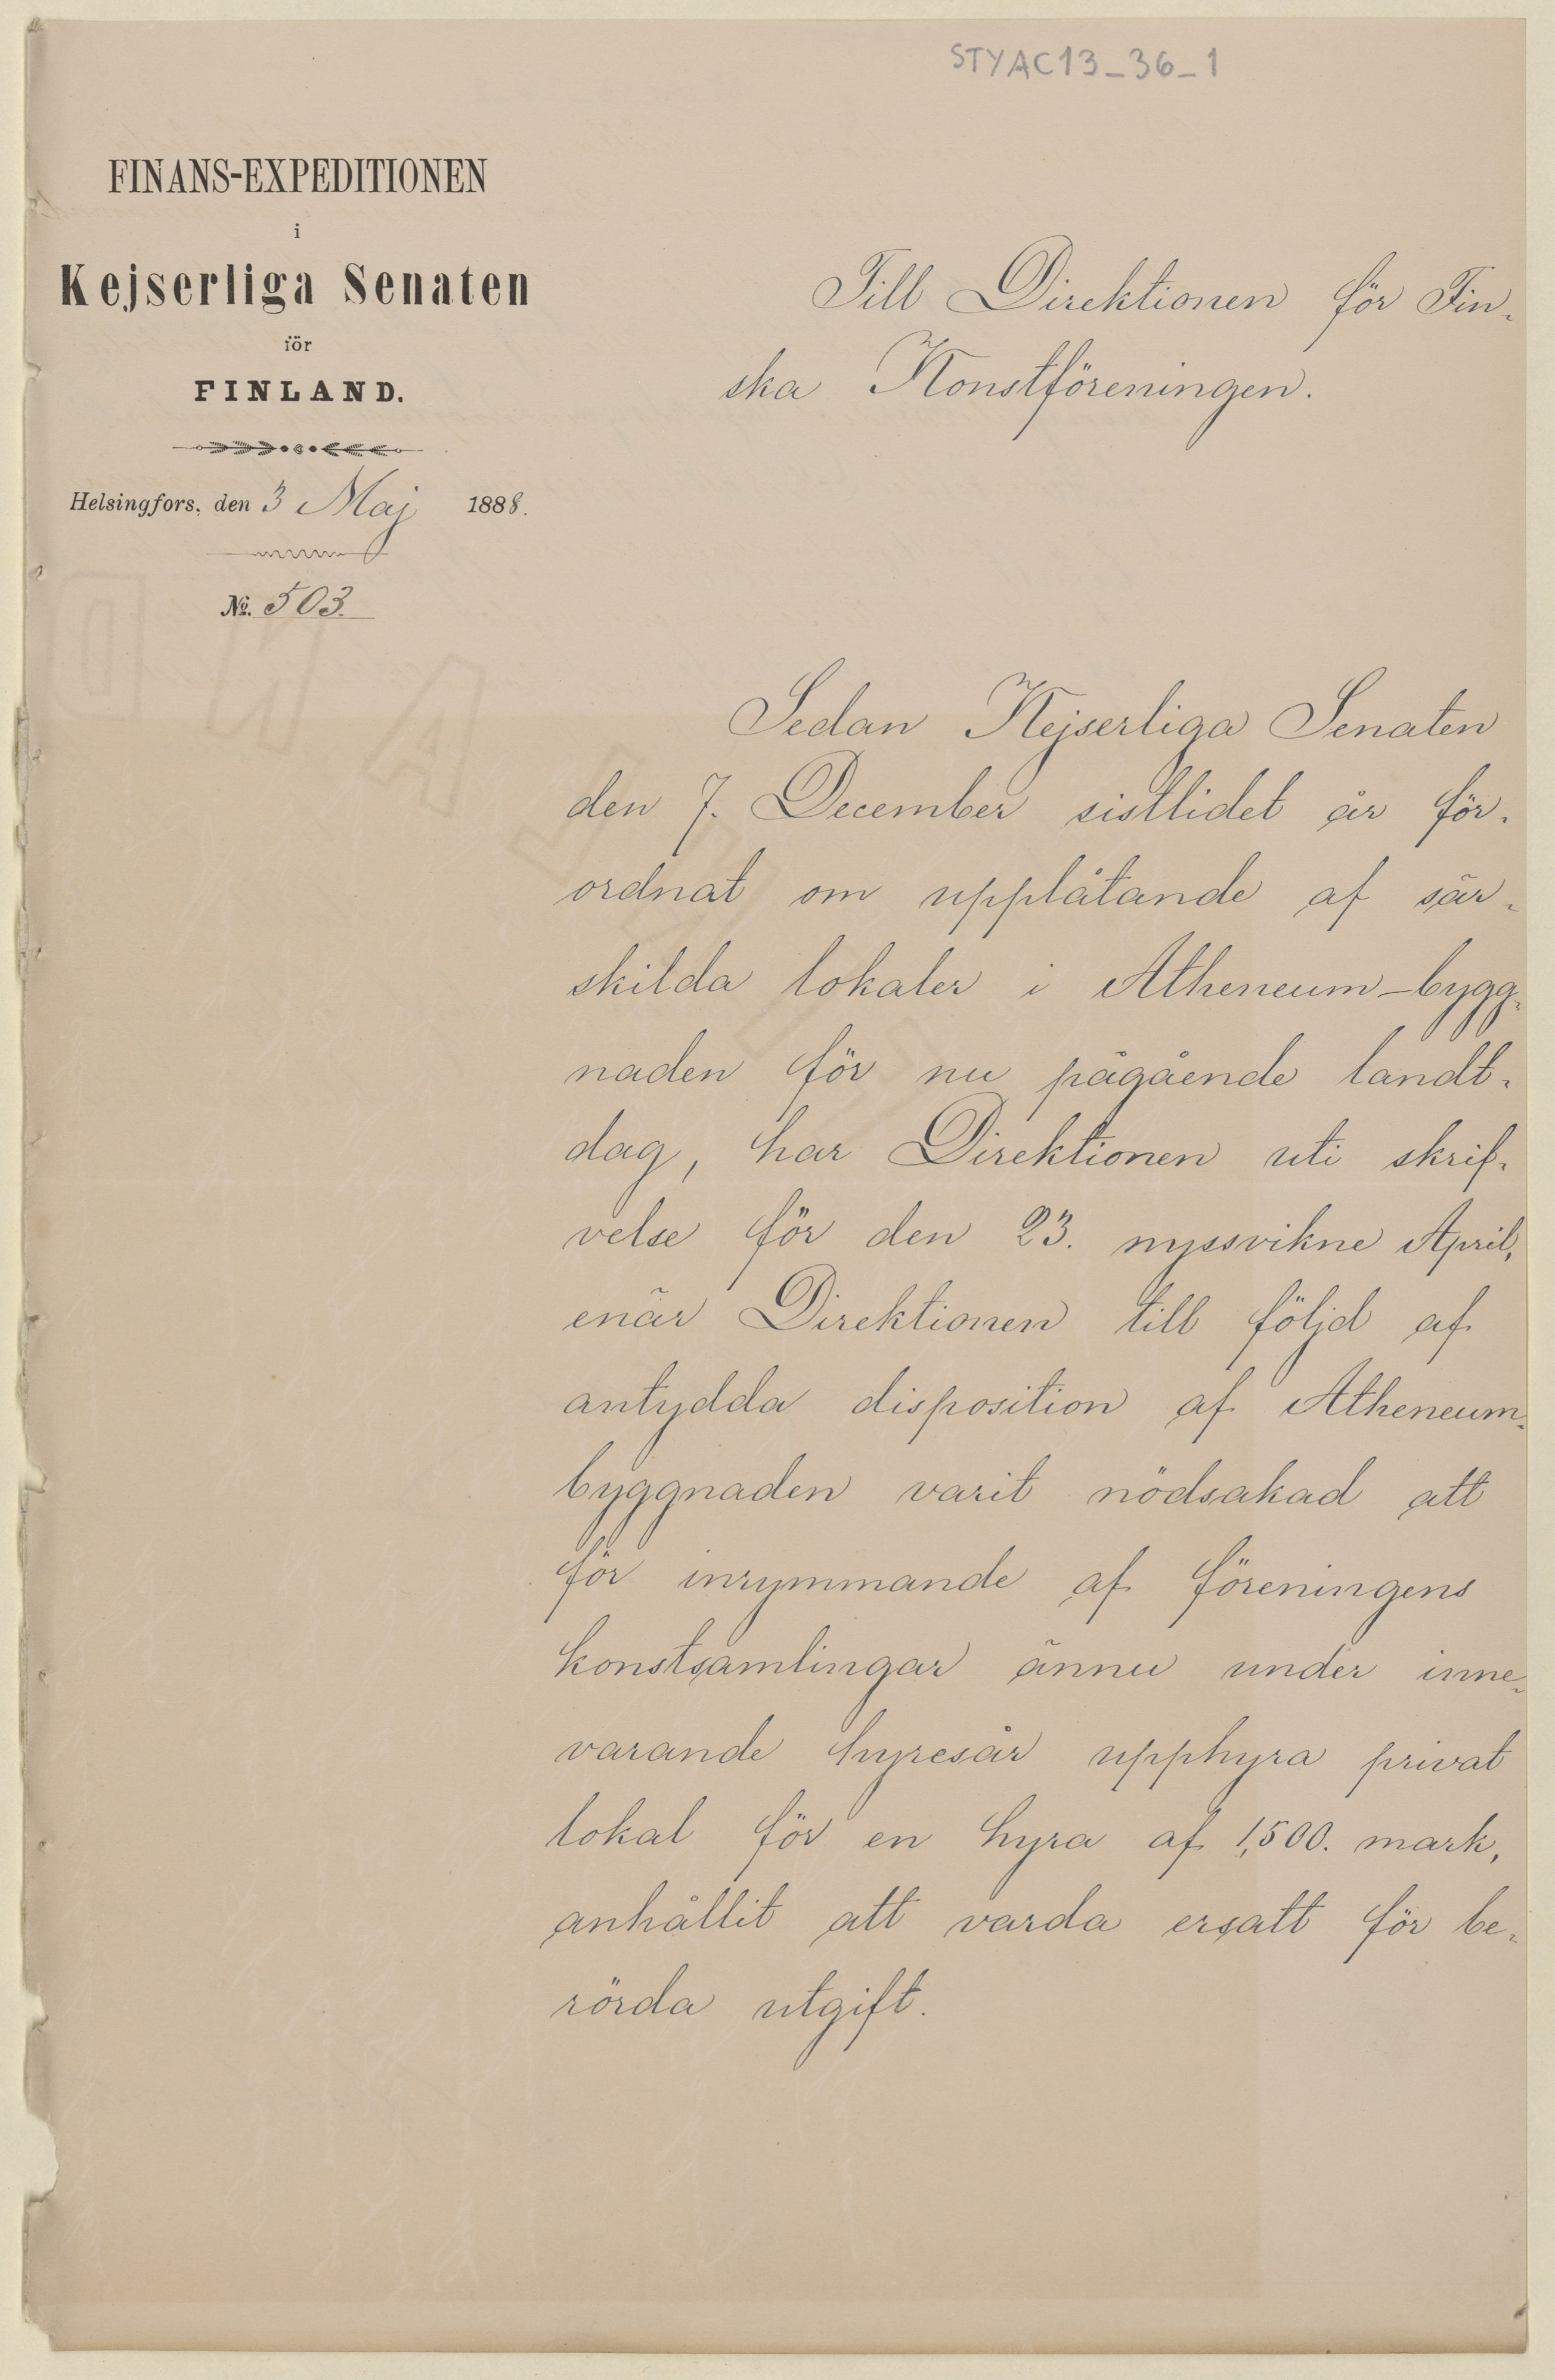 STYAC13_36_1
FINANS-EXPEDITIONEN
i
Kejserliga Senaten
för
FINLAND.
Helsingfors, den 3 Maj 1888.
№. 503.
Till Direktionen för Fin-
ska Konstföreningen.
Sedan Kejserliga Senaten
den 7. December sistlidet år för-
ordnat om upplåtande af sär-
skilda lokaler i Atheneum-bygg-
naden för nu pågående landt-
dag, har Direktionen uti skrif-
velse för den 23. nyssvikne April,
enär Direktionen till följd af
antydda disposition af Atheneum-
byggnaden varit nödsakad att
för inrymmande af föreningens
konstsamlingar ännu under inne-
varande hyresår upphyra privat
lokal för en hyra af 1,500. mark,
anhållit att varda ersatt för be-
rörda utgift.